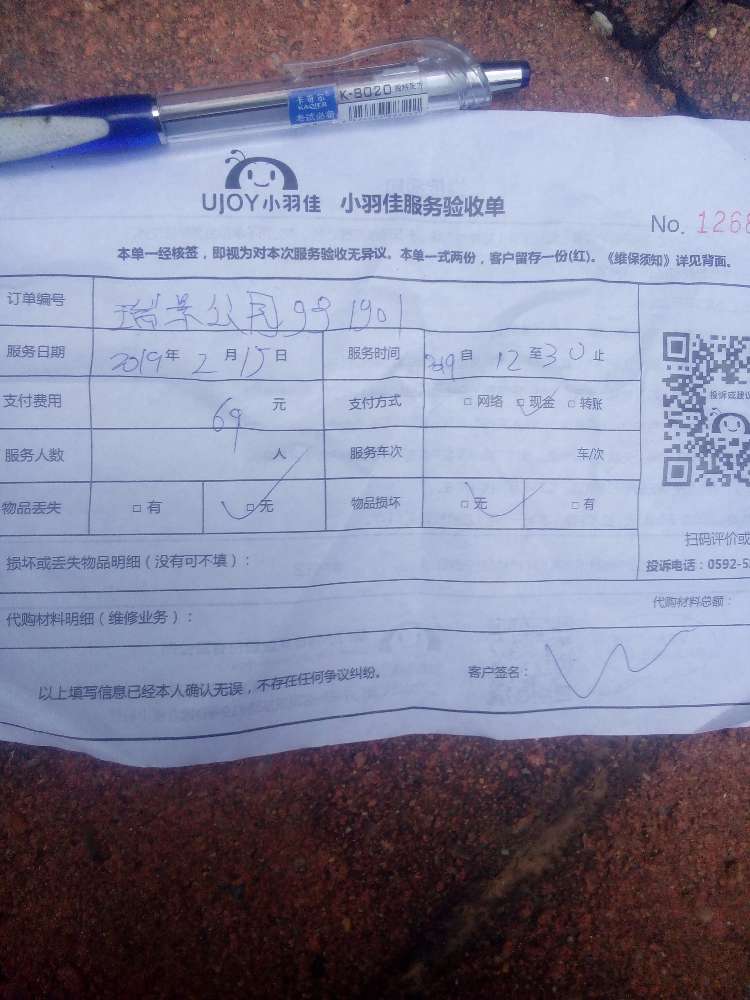 卡奇尔
KAQIER
考试必备
K-8020
UJOY小羽佳 小羽佳服务验收单
No. 1268
本单一经核签，即视为对本次服务验收无异议。本单一式两份，客户留存一份(红)。《维保须知》详见背面。
订单编号 瑞景公园99 1901
服务日期 2019年2月15日 服务时间 自 12至30止
支付费用 69 元 支付方式 □网络 □现金 □转账
服务人数 人 服务车次 车/次
物品丢失 □有 □无 物品损坏 □无 □有
投诉或建议
扫码评价或
投诉电话：0592-5
损坏或丢失物品明细（没有可不填）：
代购材料明细（维修业务）： 代购材料总额：
以上填写信息已经本人确认无误，不存在任何争议纠纷。 客户签名：